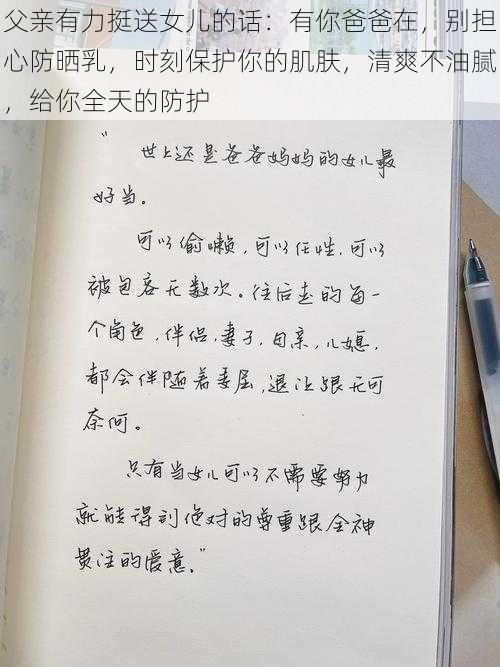 父亲有力挺送女儿的话：有你爸爸在，别担
心防晒乳，时刻保护你的肌肤，清爽不油腻
，给你全天的防护
"
世上还是爸爸妈妈的女儿最
好当。
可以偷懒，可以任性，可以
被包容无数次。往后走的每一
个角色，伴侣，妻子，母亲，儿媳，
都会伴随着委屈，退让跟无可
奈何。
只有当女儿可以不需要努力
就能得到绝对的尊重跟全神
贯注的爱意。"